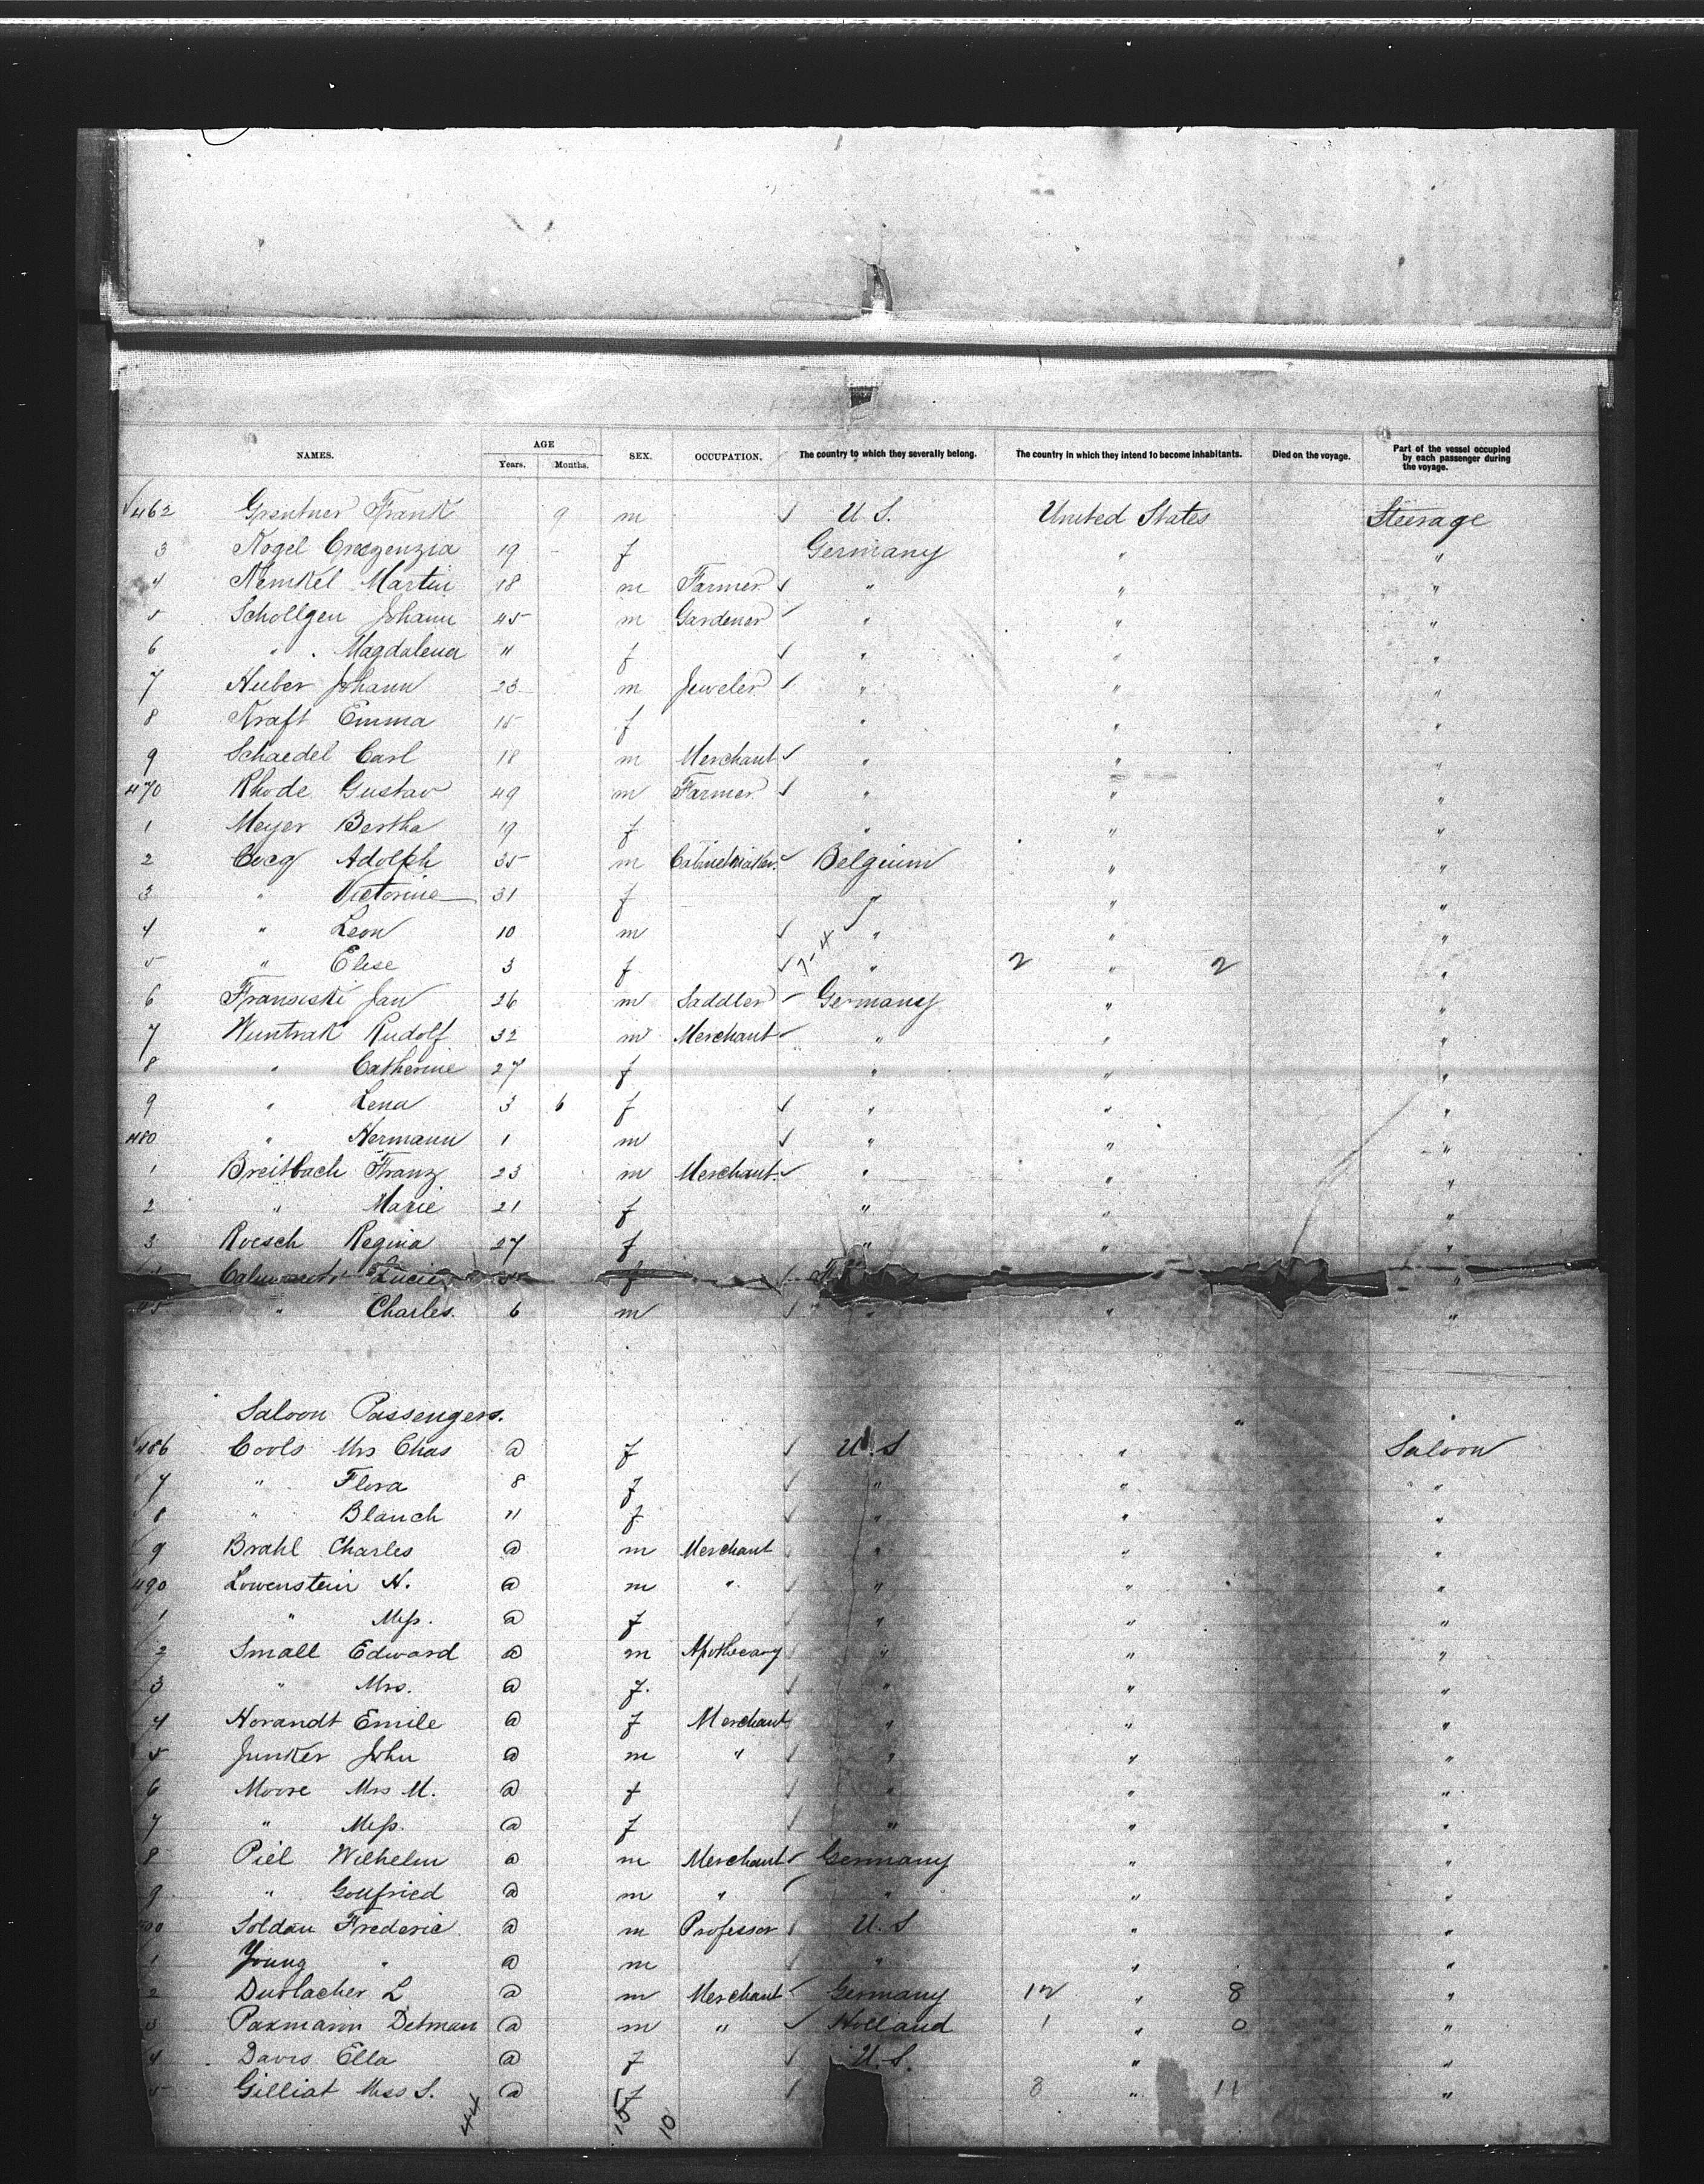 NAMES. AGE Years. Months. SEX. OCCUPATION. The country to which they severally belong. The country in which they intend to become inhabitants. Died on the voyage. Part of the vessel occupied by each passenger during the voyage.
462 Frank 9 m U S. United States Steerage
3 Nogel 19 - f Germany " "
4 Martin 18 m Farmer " " "
5 Schollgen Johann 45 m Gardener " " "
6 " Magdalena " f " " "
7 Huber Johann 23 m Jeweler " " "
8 Kraft Emma f " " "
9 Schaedel Carl 18 m Merchant " " "
470 Rhode Gustav 49 m Farmer " " "
1 Meyer Bertha 19 f " " "
2 Cocq Adolph 35 m Belgium " "
3 " Victorine 31 f " " "
4 " Leon 10 m " " "
5 " Elise 3 f " 2 " 2 "
6 Jan 26 m Saddler Germany " "
7 Wuntrak Rudolf 32 m Merchant " " "
8 " Catherine 27 f " " "
9 " Lena 3 6 f " " "
480 " Hermann 1 m " " "
1 Breitbach Franz 23 m Merchant " " "
2 " Marie 21 f " " "
3 Roesch Regina 27 f " " "
Lucie f "
5 " Charles. 6 m " " "
Saloon Passengers.
486 Cools Mrs Chas @ f U.S " Saloon
7 " Flora 8 f " " "
8 " Blanch " f " " "
9 Brahl Charles @ m Merchant " " "
490 Lowenstein H. @ m " " " "
1 " Miss. @ f " " "
2 Small Edward @ m Apothecary " " "
3 " Mrs. @ f. " " "
4 Horandt Emile @ f Merchant " " "
5 Junker John @ m " " " "
6 Moore Mrs M. @ f " " "
7 " Miss. @ f " " "
8 Piel Wilhelm @ m Merchant Germany " "
9 " Gottfried @ m " " " "
500 Soldan Frederic @ m Professor U.S " "
1 Young " @ m " " "
2 Durlacher L @ m Merchant Germany 12 " 8 "
3 Paxmann Detman @ m " Holland 1 " 0 "
4 Davis Ella @ f U.S. " "
5 Gilliat Miss S. @ f 8 " 11 "
44 15 10